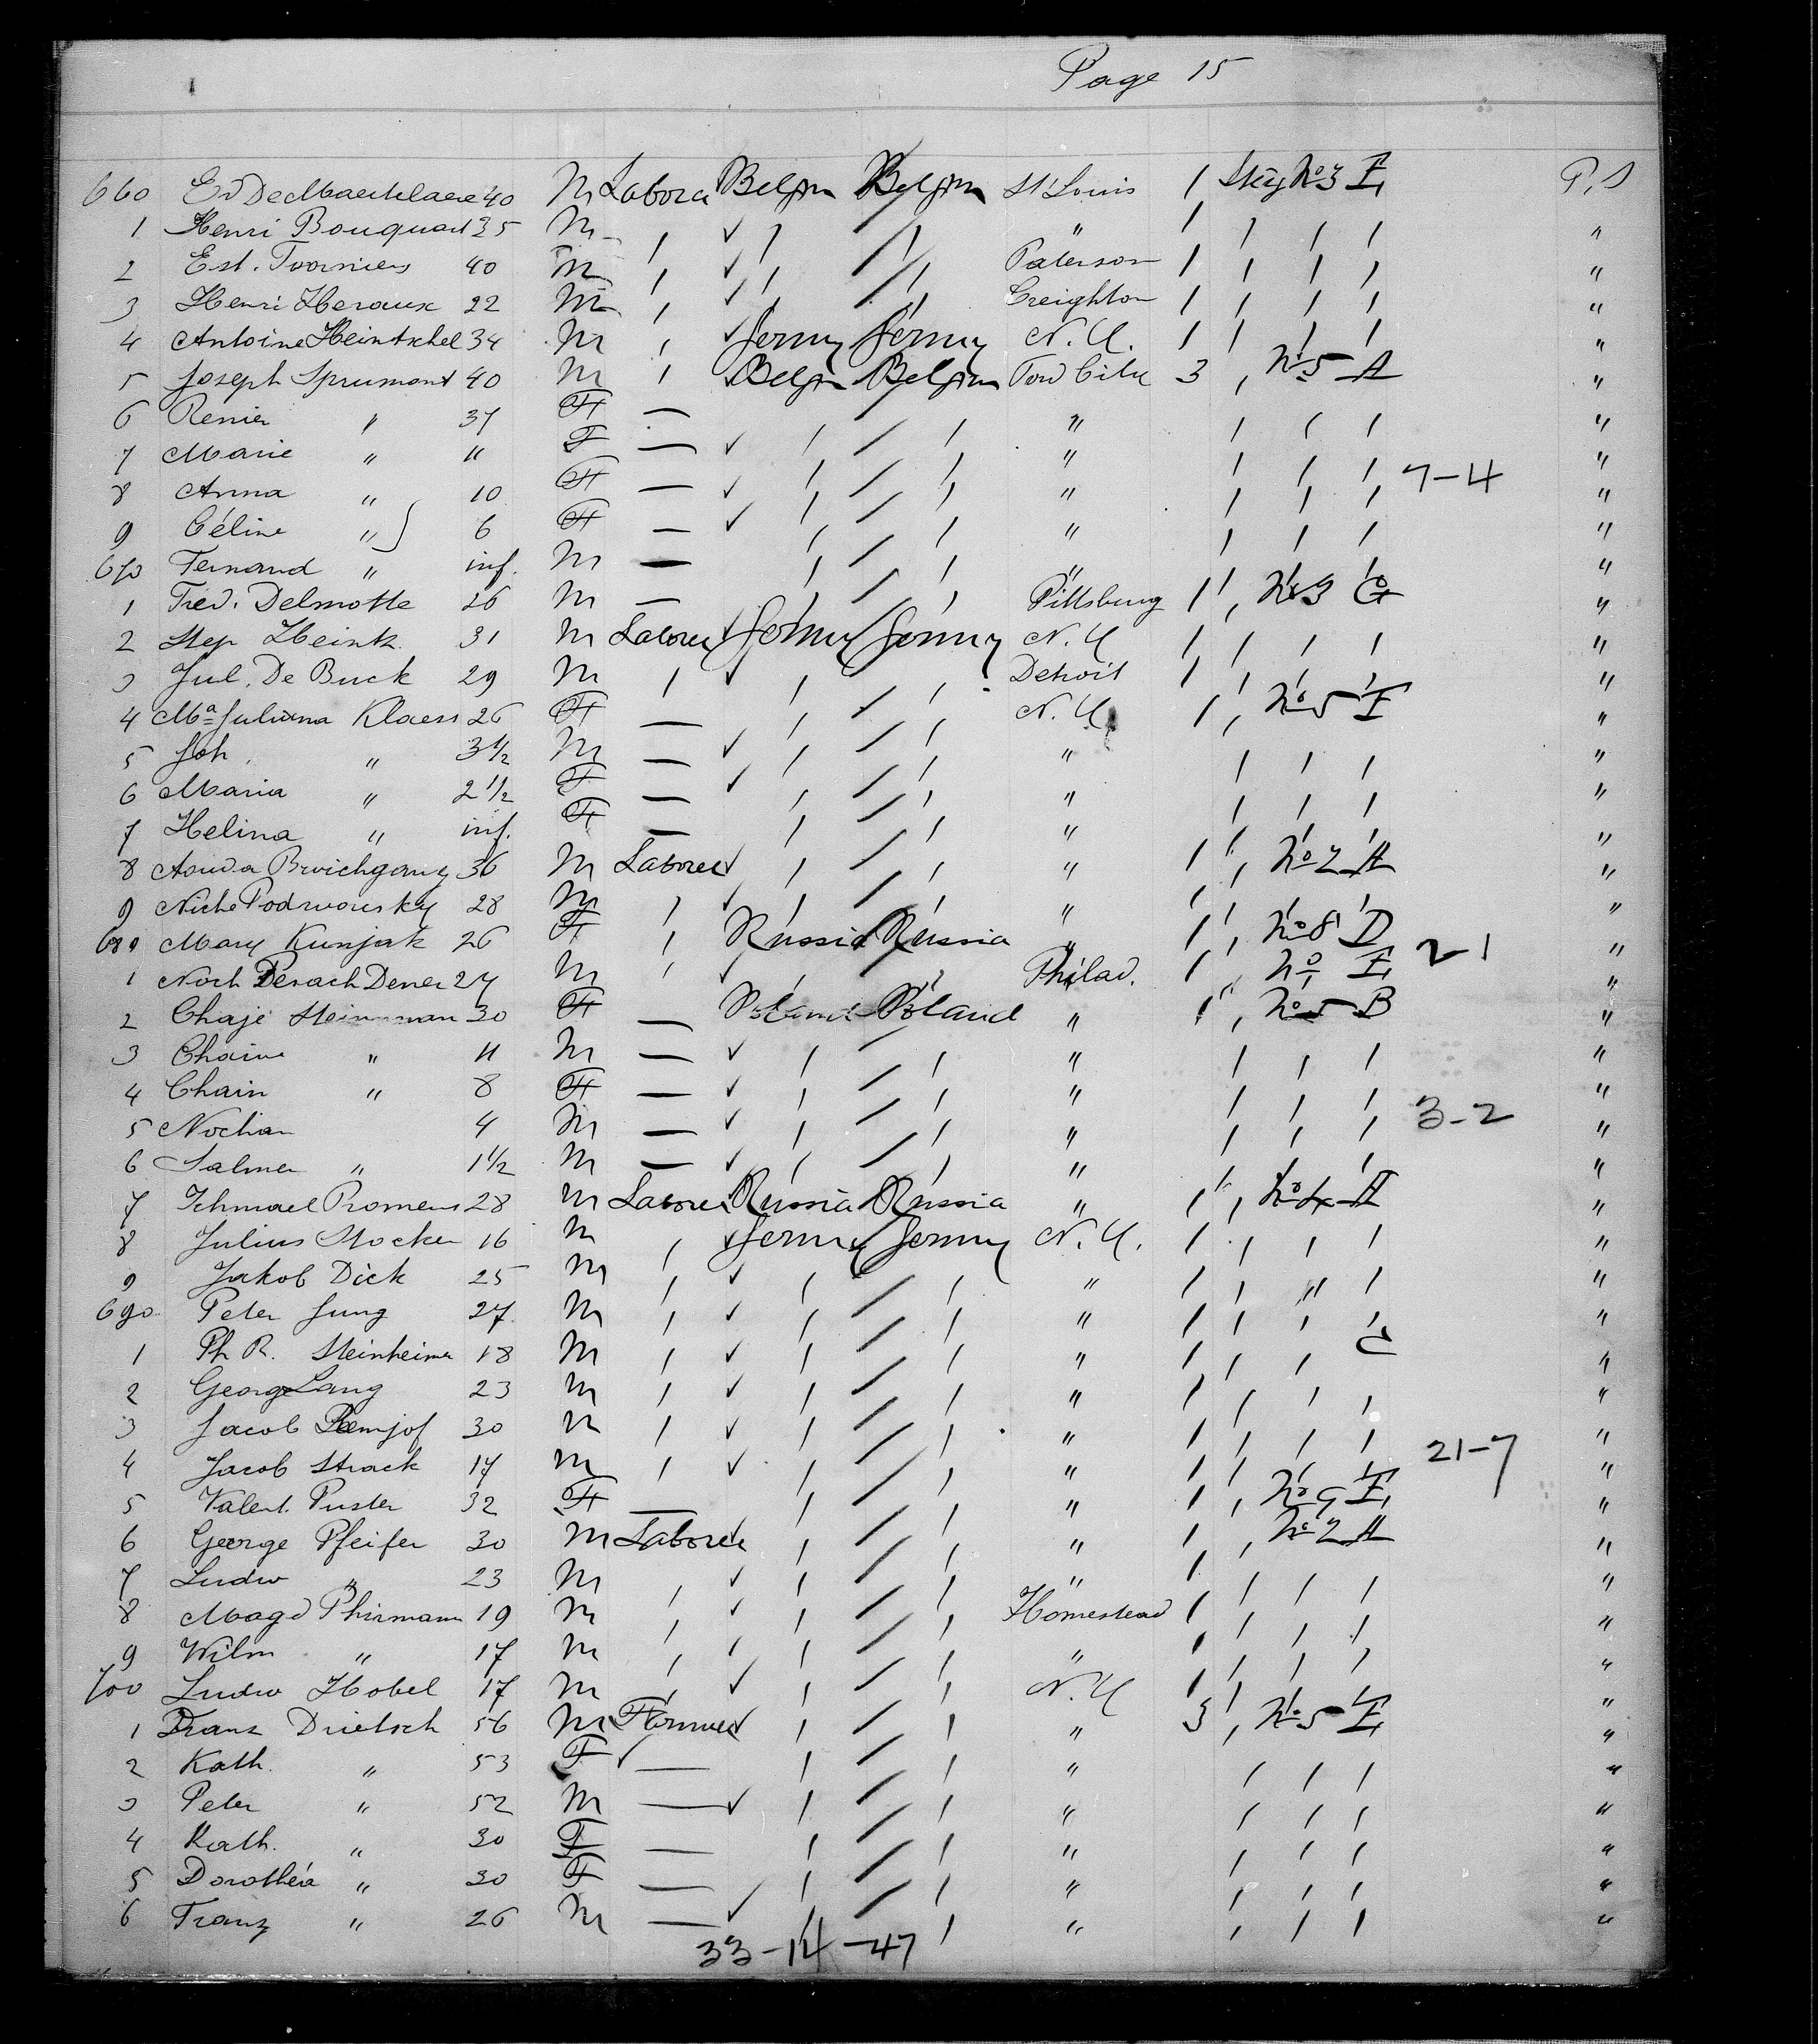 Page 15
660 Ed De Maertelaere 40 M Laborer Belgm Belgm St Louis 1 Stg No 3 E P.S
1 Henri Bouquart 35 M " " " " 1 " " " "
2 Est. 40 M " " " Paterson 1 " " " "
3 Henri Heraux 22 M " " " Creighton 1 " " " "
4 Antoine Heintschel 34 M " Germy Germy N.Y. 1 " " " "
5 Joseph Sprumont 40 M " Belgm Belgm Tow City 3 " No 5 A "
6 Renier " 37 F — " " " " " "
7 Marie " 11 F — " " " " " " "
8 Anna " 10 F — " " " " " " 7-4 "
9 Céline " 6 F — " " " " " " "
670 Fernand " inf. M — " " " " " " "
1 Fred. Delmotte 26 M — " " Pittsburg 1 " No 3 G "
2 Step Heintz 31 M Laborer Germy Germy N.Y 1 " " " "
3 Jul. De Buck 29 M " " " Detroit 1 " " " "
4 Ma Juliana Klaess 26 F — " " N.Y 1 " No 5 E "
5 Joh. " 3 1/2 M — " " " " " " "
6 Maria " 2 1/2 F — " " " " " " "
7 Helina " inf. F — " " " " " " "
8 36 M Laborer " " " 1 " No 2 A "
9 Podwousky 28 M " " " " 1 " " " "
680 Mary Kunjak 26 F " Russia Russia " 1 " No 8 D "
1 Noch Pesach Dener 27 M " " " Philad. 1 " No E 2-1 "
2 Chaje Steinman 30 F — Poland Poland " 1 " No 5 B "
3 Chaim " 11 M — " " " " " " "
4 Chain " 8 F — " " " " " " "
5 Nochan 4 M — " " " " " " 3-2 "
6 Salmen " 1 1/2 M — " " " " " " "
7 Ischmael Promens 28 M Laborer Russia Russia " 1 " No 4 A "
8 Julius Stocker 16 M " Germy Germy N.Y. 1 " " " "
9 Jakob Dick 25 M " " " " 1 " " " "
690 Peter Jung 27 M " " " " 1 " " " "
1 Ph R. Steinheimer 18 M " " " " 1 " " C "
2 George Lang 23 M " " " " 1 " " " "
3 Jacob 30 M " " " " 1 " " " "
4 Jacob Strack 17 M " " " " 1 " " " 21-7 "
5 Valent. Puster 32 F — " " " 1 " No 9 E "
6 George Pfeifer 30 M Laborer " " " 1 " No 2 A "
7 Ludw " 23 M " " " " 1 " " " "
8 Magd Phirmann 19 M " " " Homestead 1 " " " "
9 Wilm " 17 M " " " " 1 " " " "
700 Ludw Hobel 17 M " " " N.Y 1 " " " "
1 Franz Drietsch 56 M Farmer " " " 3 " No 5 E "
2 Kath. " 53 F — " " " " " " "
3 Peter " 52 M — " " " " " " "
4 Kath. " 30 F — " " " " " " "
5 Dorothéa " 30 F — " " " " " " "
6 Franz " 26 M — " " " " " " "
33-14-47